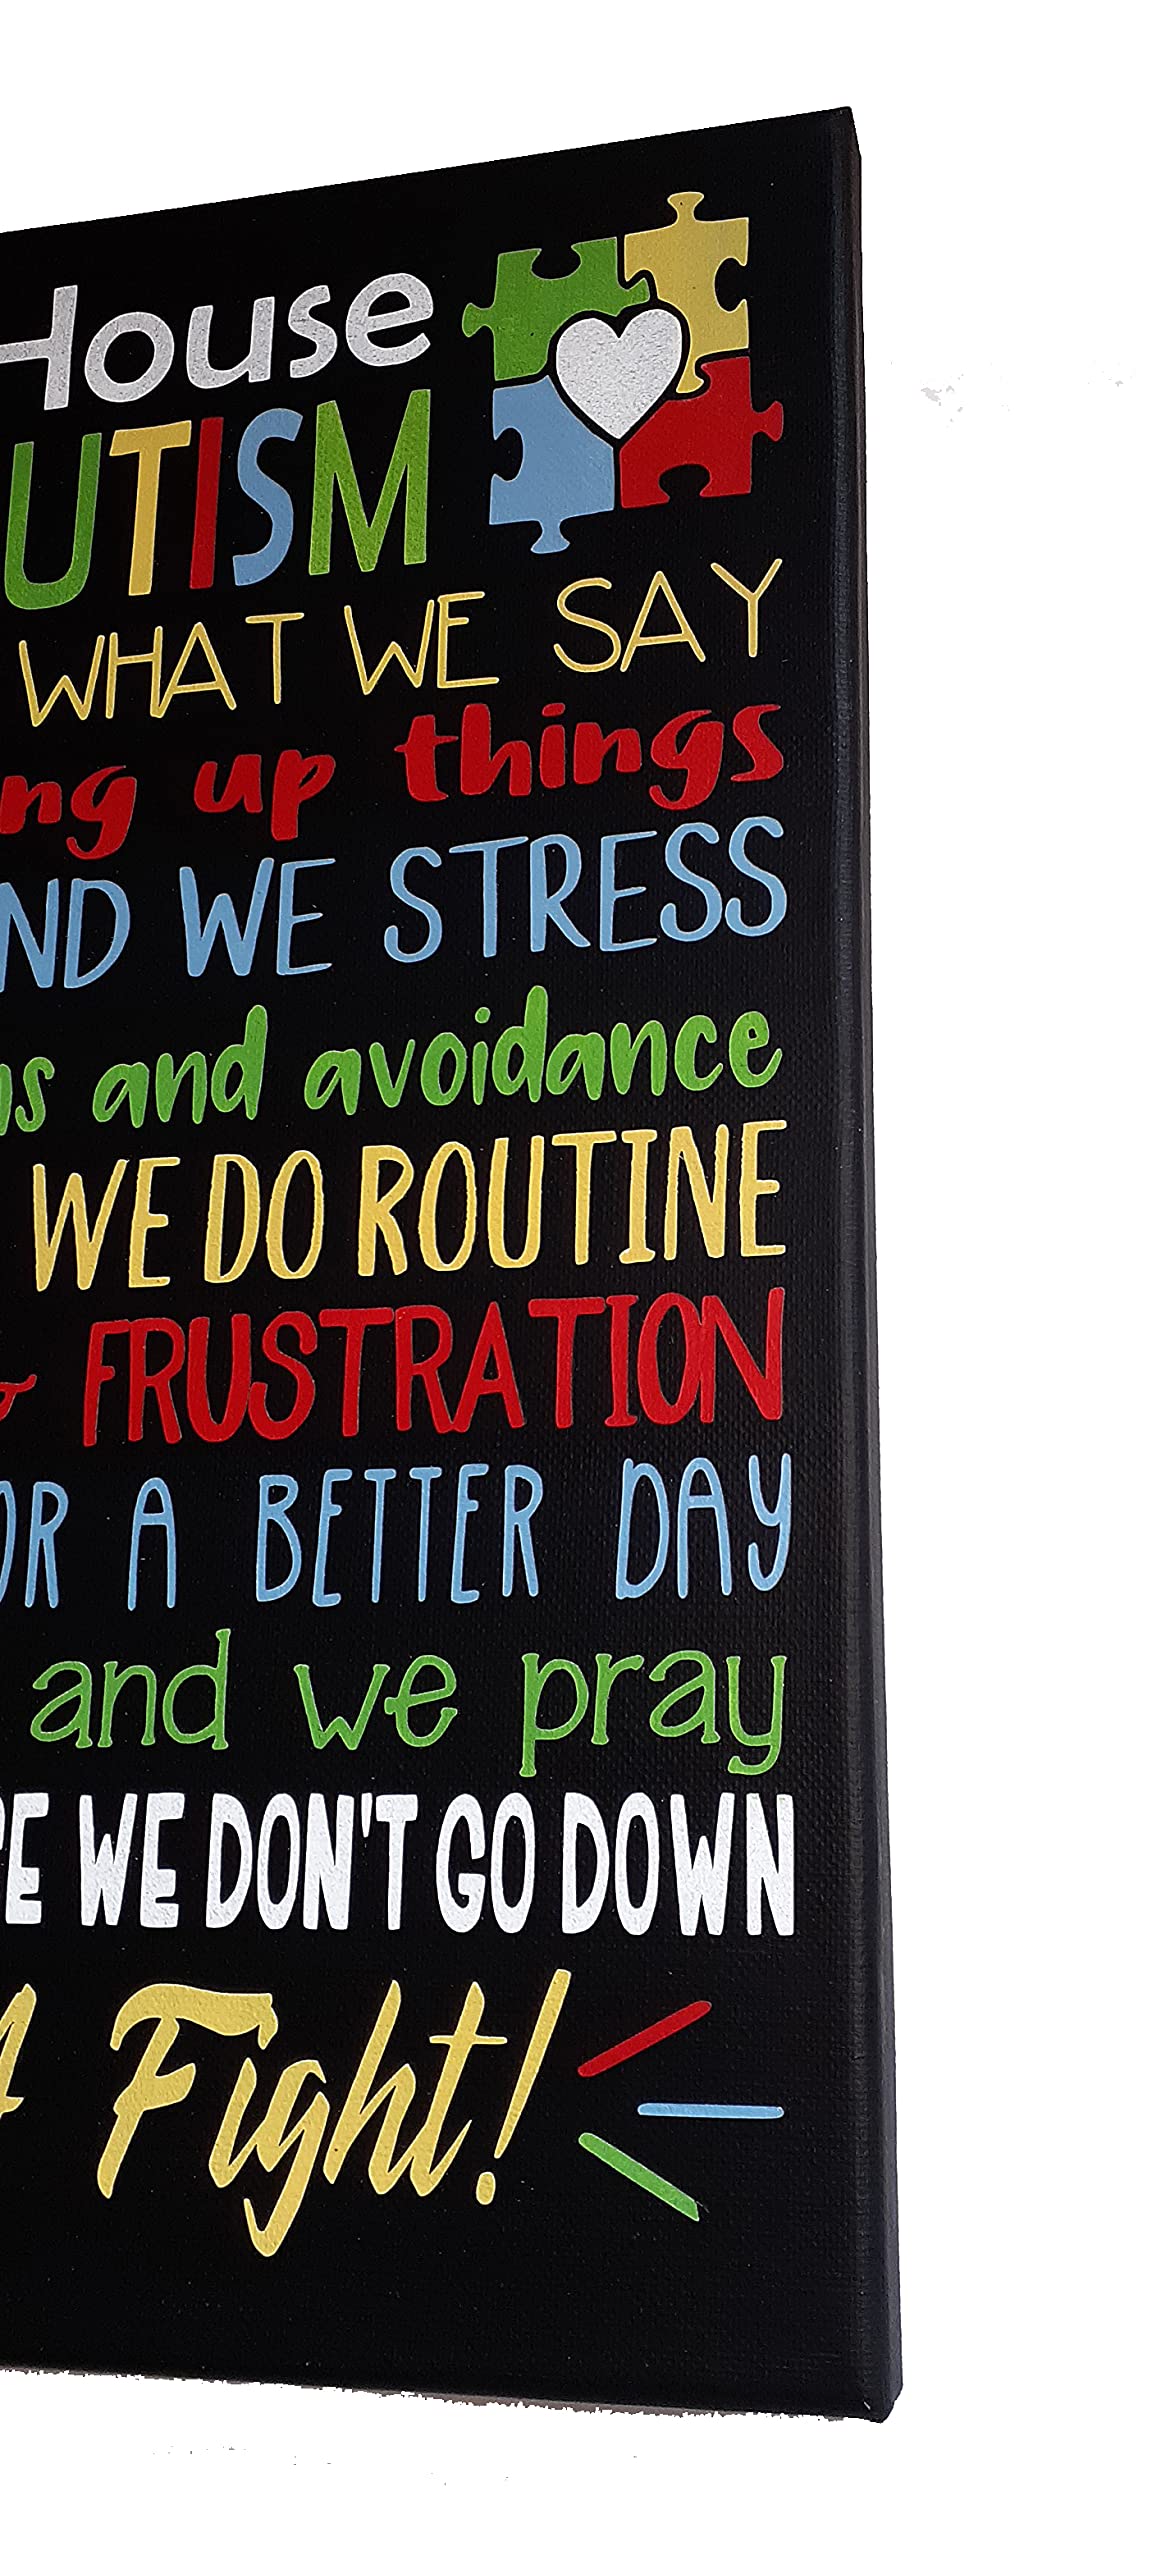 House
UTISM
WHAT WE SAY
ng up things
ND WE STRESS
ns and avoidance
WE DO ROUTINE
FRUSTRATION
OR A BETTER DAY
and we pray
RE WE DON'T GO DOWN
A Fight!